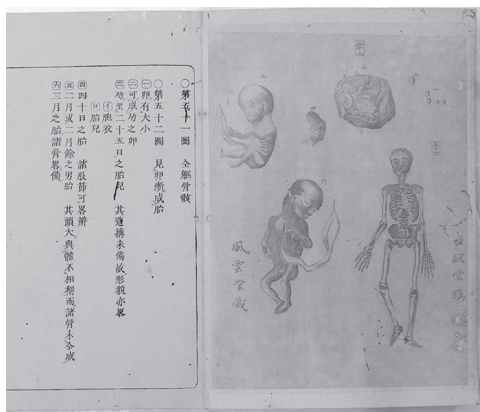 五十一
風雲堂藏
〇第五十一圖 全軀骨骸
〇第五十二圖 見卵漸成胎
㊀卵有大小
㊁可成功之卵
㊂ 至二十五日之胎兒 其造搆未備故形貌亦畧
㋑胞衣
㋺胎兒
㊃四十日之胎 諸肢節可畧辨
㊄二月或二月餘之男胎 其頭大與體不相稱而諸骨未全成
㊅三月之胎諸骨畧備